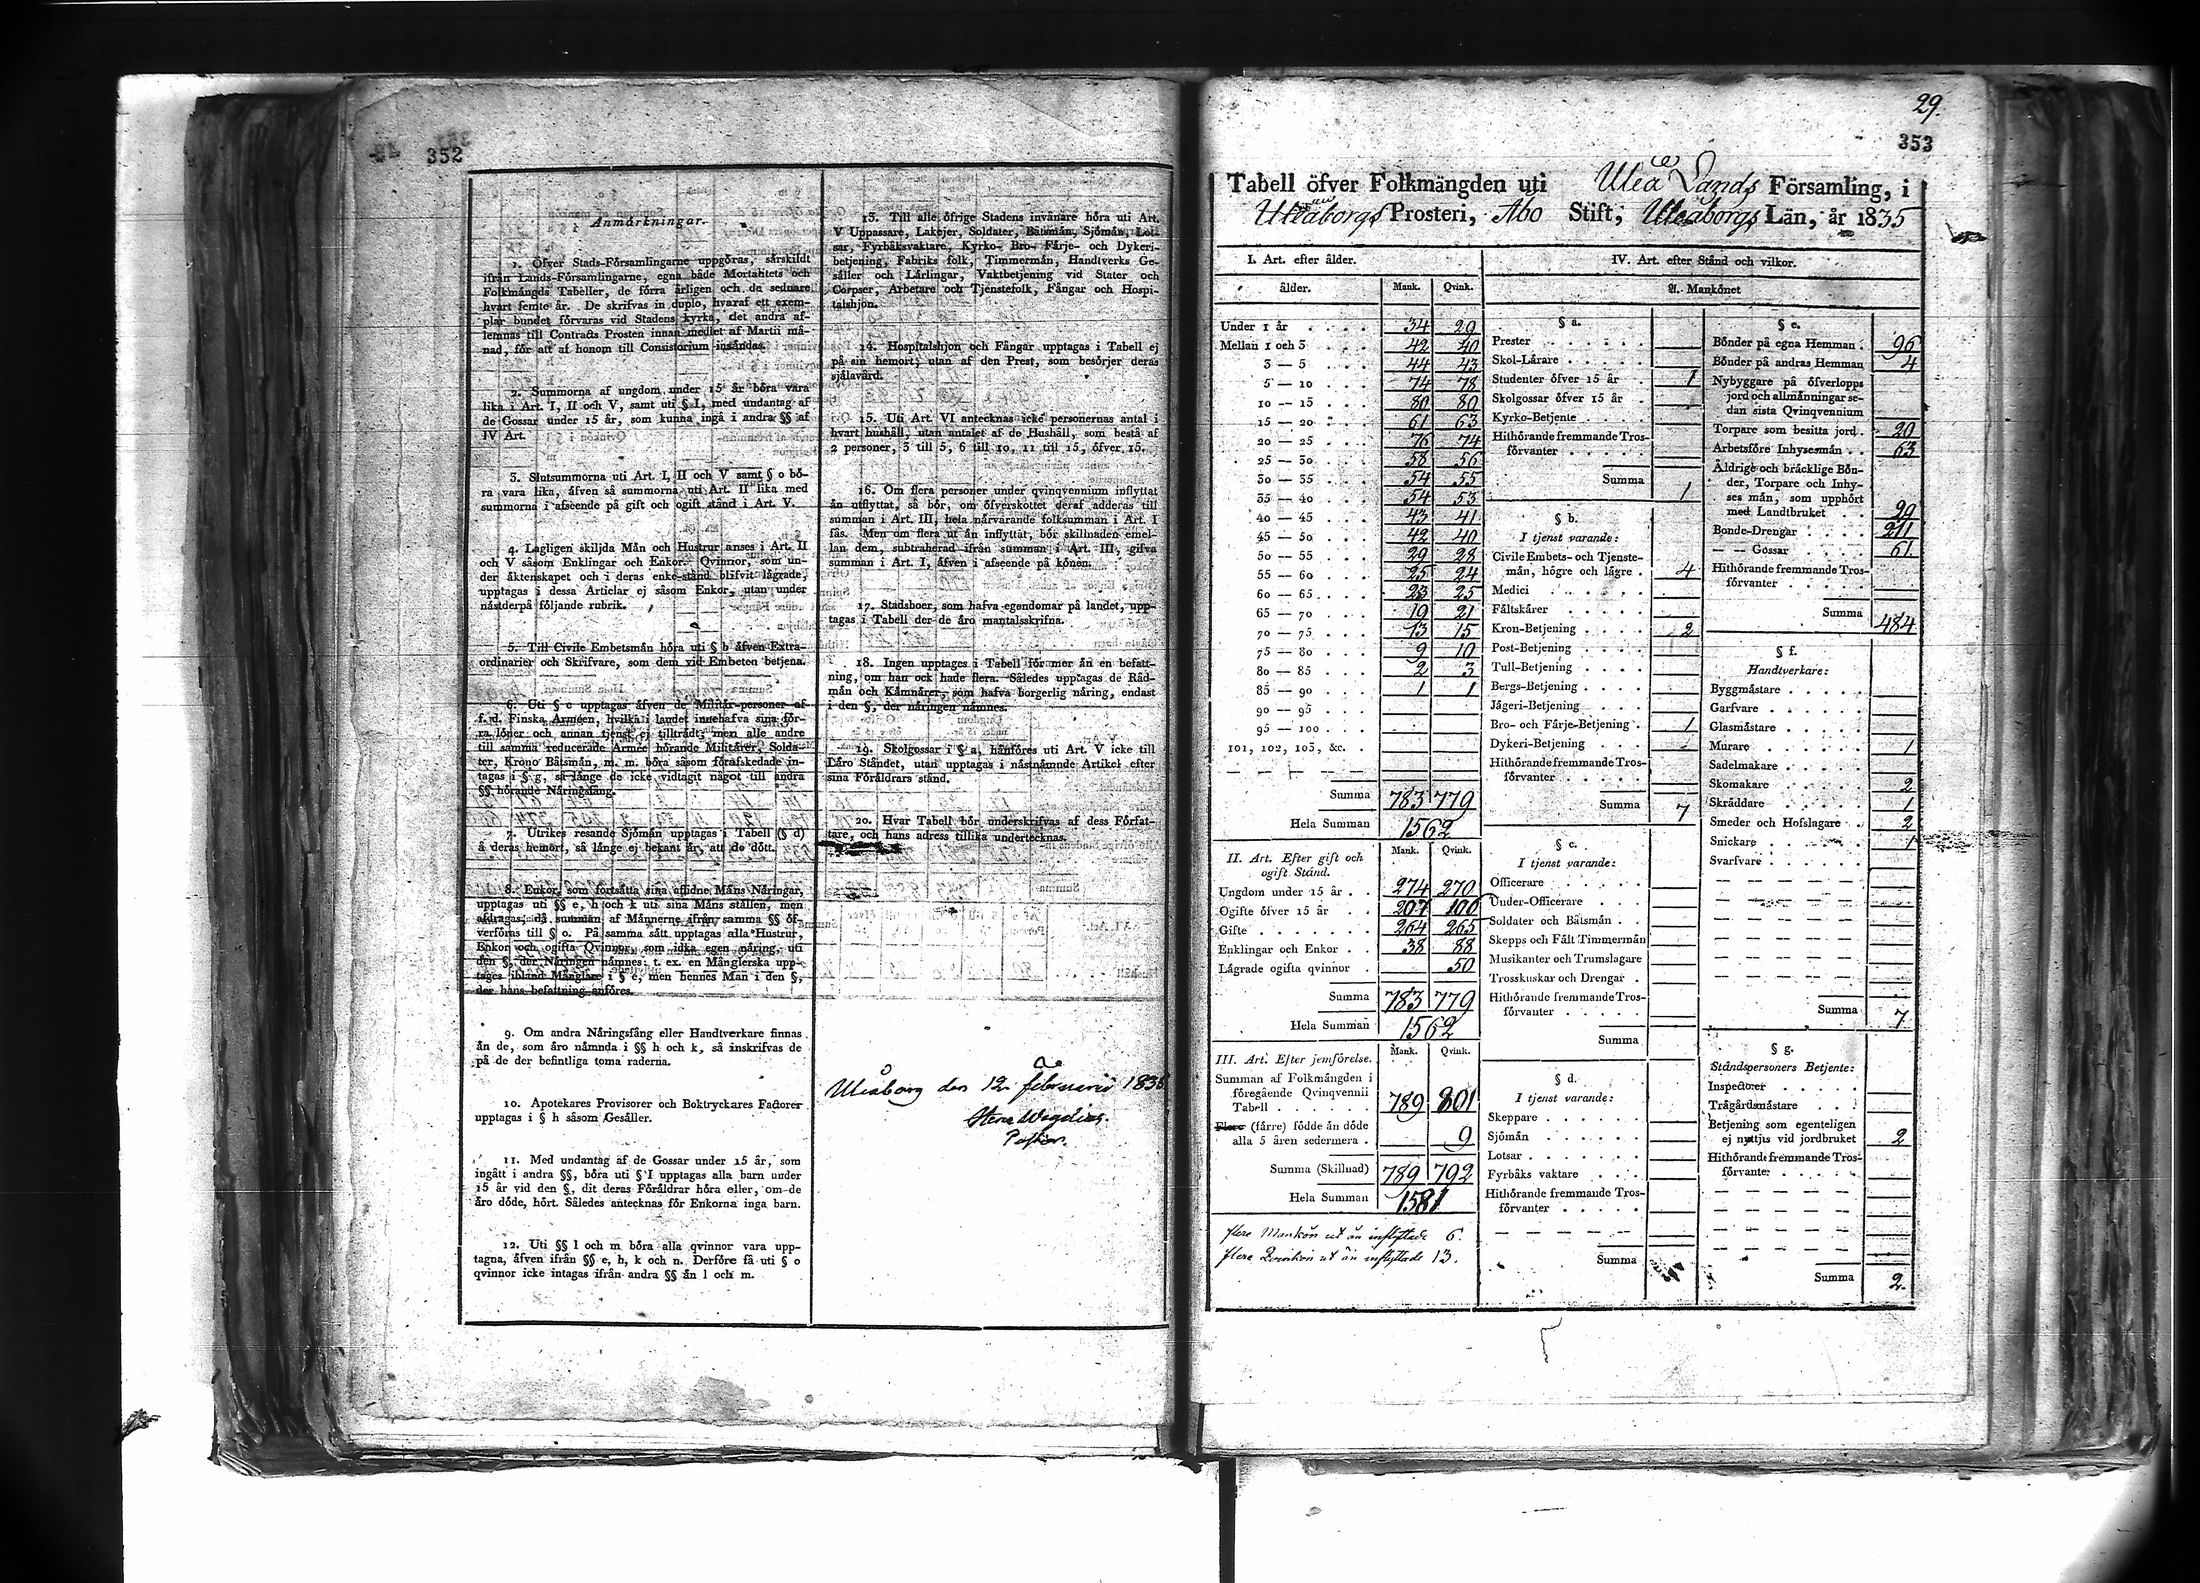 352
Anmärkningar.
1. Öfver Stads-Församlingarne uppgöras, särskildt
ifrån Lands-Församlingarne, egna både Mortalitets och
Folkmängds Tabeller, de förra årligen och de sednare
hvart femte år. De skrifvas in duplo, hvaraf ett exem-
plar bundet förvaras vid Stadens kyrka, det andra af-
lemnas till Contracts Prosten innan medlet af Martii må-
nad, för att af honom till Consistorium insändas.
2. Summorna af ungdom under 15 år böra vara
lika i Art. I, II och V, samt uti § I, med undantag af
de Gossar under 15 år, som kunna ingå i andra §§ af
IV Art.
3. Slutsummorna uti Art. I, II och V samt § o bö-
ra vara lika, äfven så summorna uti Art. II lika med
summorna i afseende på gift och ogift stånd i Art. V.
4. Lagligen skiljda Män och Hustrur anses i Art. II
och V såsom Enklingar och Enkor. Qvinnor, som un-
der äktenskapet och i deras enke-stånd blifvit lägrade,
upptagas i dessa Articlar ej såsom Enkor, utan under
nästderpå följande rubrik.
5. Till Civile Embetsmän höra uti § b äfven Extra-
ordinarier och Skrifvare, som dem vid Embeten betjena.
6. Uti § c upptagas äfven de Militär-personer af
f. d. Finska Armeen, hvilka i landet innehafva sina för-
ra löner och annan tjenst ej tillträdt; men alle andre
till samma reducerade Armée hörande Militärer, Solda-
ter, Krono Båtsmän, m. m. böra såsom förafskedade in-
tagas i § g, så länge de icke vidtagit något till andra
§§ hörande Näringsfång.
7. Utrikes resande Sjömän upptagas i Tabell (§ d)
å deras hemort, så länge ej bekant är, att de dött.
8. Enkor, som fortsätta sina aflidne Mäns Näringar,
upptagas uti §§ e, h och k uti sina Mäns ställen, men
afdragas, då summan af Männerne ifrån samma §§ öf-
verföras till § o. På samma sätt upptagas alla Hustrur,
Enkor och ogifta Qvinnor, som idka egen näring, uti
den §, der Näringen nämnes: t. ex. en Månglerska upp-
tages ibland Månglare i § e, men hennes Man i den §,
der hans befattning anföres.
9. Om andra Näringsfång eller Handtverkare finnas
än de, som äro nämnda i §§ h och k, så inskrifvas de
på de der befintliga toma raderna.
10. Apotekares Provisorer och Boktryckares Factorer
upptagas i § h såsom Gesäller.
11. Med undantag af de Gossar under 15 år, som
ingått i andra §§, böra uti § I upptagas alla barn under
15 år vid den §, dit deras Föräldrar höra eller, om de
äro döde, hört. Således antecknas för Enkorna inga barn.
12. Uti §§ l och m böra alla qvinnor vara upp-
tagna, äfven ifrån §§ e, h, k och n. Derföre få uti § o
qvinnor icke intagas ifrån andra §§ än l och m.
13. Till alle öfrige Stadens invånare höra uti Art.
V Uppassare, Lakejer, Soldater, Båtsmän, Sjömän, Lot-
sar, Fyrbåksvaktare, Kyrko- Bro- Färje- och Dykeri-
betjening, Fabriks folk, Timmermän, Handtverks Ge-
säller och Lärlingar, Vaktbetjening vid Stater och
Corpser, Arbetare och Tjenstefolk, Fångar och Hospi-
talshjon.
14. Hospitalshjon och Fångar upptagas i Tabell ej
på sin hemort, utan af den Prest, som besörjer deras
själavård.
15. Uti Art. VI antecknas icke personernas antal i
hvart hushåll, utan antalet af de Hushåll, som bestå af
2 personer, 3 till 5, 6 till 10, 11 till 15, öfver 15.
16. Om flera personer under qvinqvennium inflyttat
än utflyttat, så bör, om öfverskottet deraf adderas till
summan i Art. III, hela närvarande folksumman i Art. I
fås. Men om flera ut än inflyttat, bör skillnaden emel-
lan dem, subtraherad ifrån summan i Art. III, gifva
summan i Art. I, äfven i afseende på könen.
17. Stadsboer, som hafva egendomar på landet, upp-
tagas i Tabell der de äro mantalsskrifna.
18. Ingen upptages i Tabell för mer än en befatt-
ning, om han ock hade flera. Således upptagas de Råd-
män och Kämnärer, som hafva borgerlig näring, endast
i den §, der näringen nämnes.
19. Skolgossar i § a, hänföres uti Art. V icke till
Läro Ståndet, utan upptagas i nästnämnde Artikel efter
sina Föräldrars stånd.
20. Hvar Tabell bör underskrifvas af dess Förfat-
tare, och hans adress tillika undertecknas.
Uleåborg den 12 februarii 1836
Pastor.
29.
353
Tabell öfver Folkmängden uti Uleå Lands Församling, i
Uleåborgs Prosteri, Åbo Stift, Uleåborgs Län, år 1835
I. Art. efter ålder.
ålder. Mank. Qvink.
Under 1 år 34 29
Mellan 1 och 3 42 40
3 — 5 44 43
5 — 10 74 78
10 — 15 80 80
15 — 20 61 63
20 — 25 76 74
25 — 30 58 56
30 — 35 54 55
35 — 40 54 53
40 — 45 43 41
45 — 50 42 40
50 — 55 29 28
55 — 60 25 24
60 — 65 23 25
65 — 70 19 21
70 — 75 13 15
75 — 80 9 10
80 — 85 2 3
85 — 90 1 1
90 — 95
95 — 100
101, 102, 103, &c.
Summa 783 779
Hela Summan 1562
II. Art. Efter gift och ogift Stånd. Mank. Qvink.
Ungdom under 15 år 274 270
Ogifte öfver 15 år 207 106
Gifte 264 265
Enklingar och Enkor 38 88
Lägrade ogifta qvinnor 50
Summa 783 779
Hela Summan 1562
III. Art. Efter jemförelse. Mank. Qvink.
Summan af Folkmängden i
föregående Qvinqvennii
Tabell 789 801
Flere (färre) födde än döde
alla 5 åren sedermera 9
Summa (Skillnad) 789 792
Hela Summan 1581
flere Mankön ut än inflyttade 6.
flere Qvinkön ut än inflyttade 13.
IV. Art. efter Stånd och vilkor.
A. Mankönet
§ a.
Prester
Skol-Lärare
Studenter öfver 15 år 1
Skolgossar öfver 15 år
Kyrko-Betjente
Hithörande fremmande Tros-
förvanter
Summa 1
§ b.
I tjenst varande:
Civile Embets- och Tjenste-
män, högre och lägre 4
Medici
Fältskärer
Kron-Betjening 2
Post-Betjening
Tull-Betjening
Bergs-Betjening
Jägeri-Betjening
Bro- och Färje-Betjening 1
Dykeri-Betjening
Hithörande fremmande Tros-
förvanter
Summa 7
§ c.
I tjenst varande:
Officerare
Under-Officerare
Soldater och Båtsmän
Skepps och Fält Timmermän
Musikanter och Trumslagare
Trosskuskar och Drengar
Hithörande fremmande Tros-
förvanter
Summa
§ d.
I tjenst varande:
Skeppare
Sjömän
Lotsar
Fyrbåks vaktare
Hithörande fremmande Tros-
förvanter
Summa
§ e.
Bönder på egna Hemman 96
Bönder på andras Hemman 4
Nybyggare på öfverlopps
jord och allmänningar se-
dan sista Qvinqvennium
Torpare som besitta jord 20
Arbetsföre Inhysesmän 63
Åldrige och bräcklige Bön-
der, Torpare och Inhy-
ses män, som upphört
med Landtbruket 29
Bonde-Drengar 211
— — Gossar 61
Hithörande fremmande Tros-
förvanter
Summa 484
§ f.
Handtverkare:
Byggmästare
Garfvare
Glasmästare
Murare 1
Sadelmakare
Skomakare 2
Skräddare 1
Smeder och Hofslagare 2
Snickare 1
Svarfvare
Summa 7
§ g.
Ståndspersoners Betjente:
Inspectorer
Trägårdsmästare
Betjening som egenteligen
ej nyttjus vid jordbruket 2
Hithörande fremmande Tros-
förvanter
Summa 2.